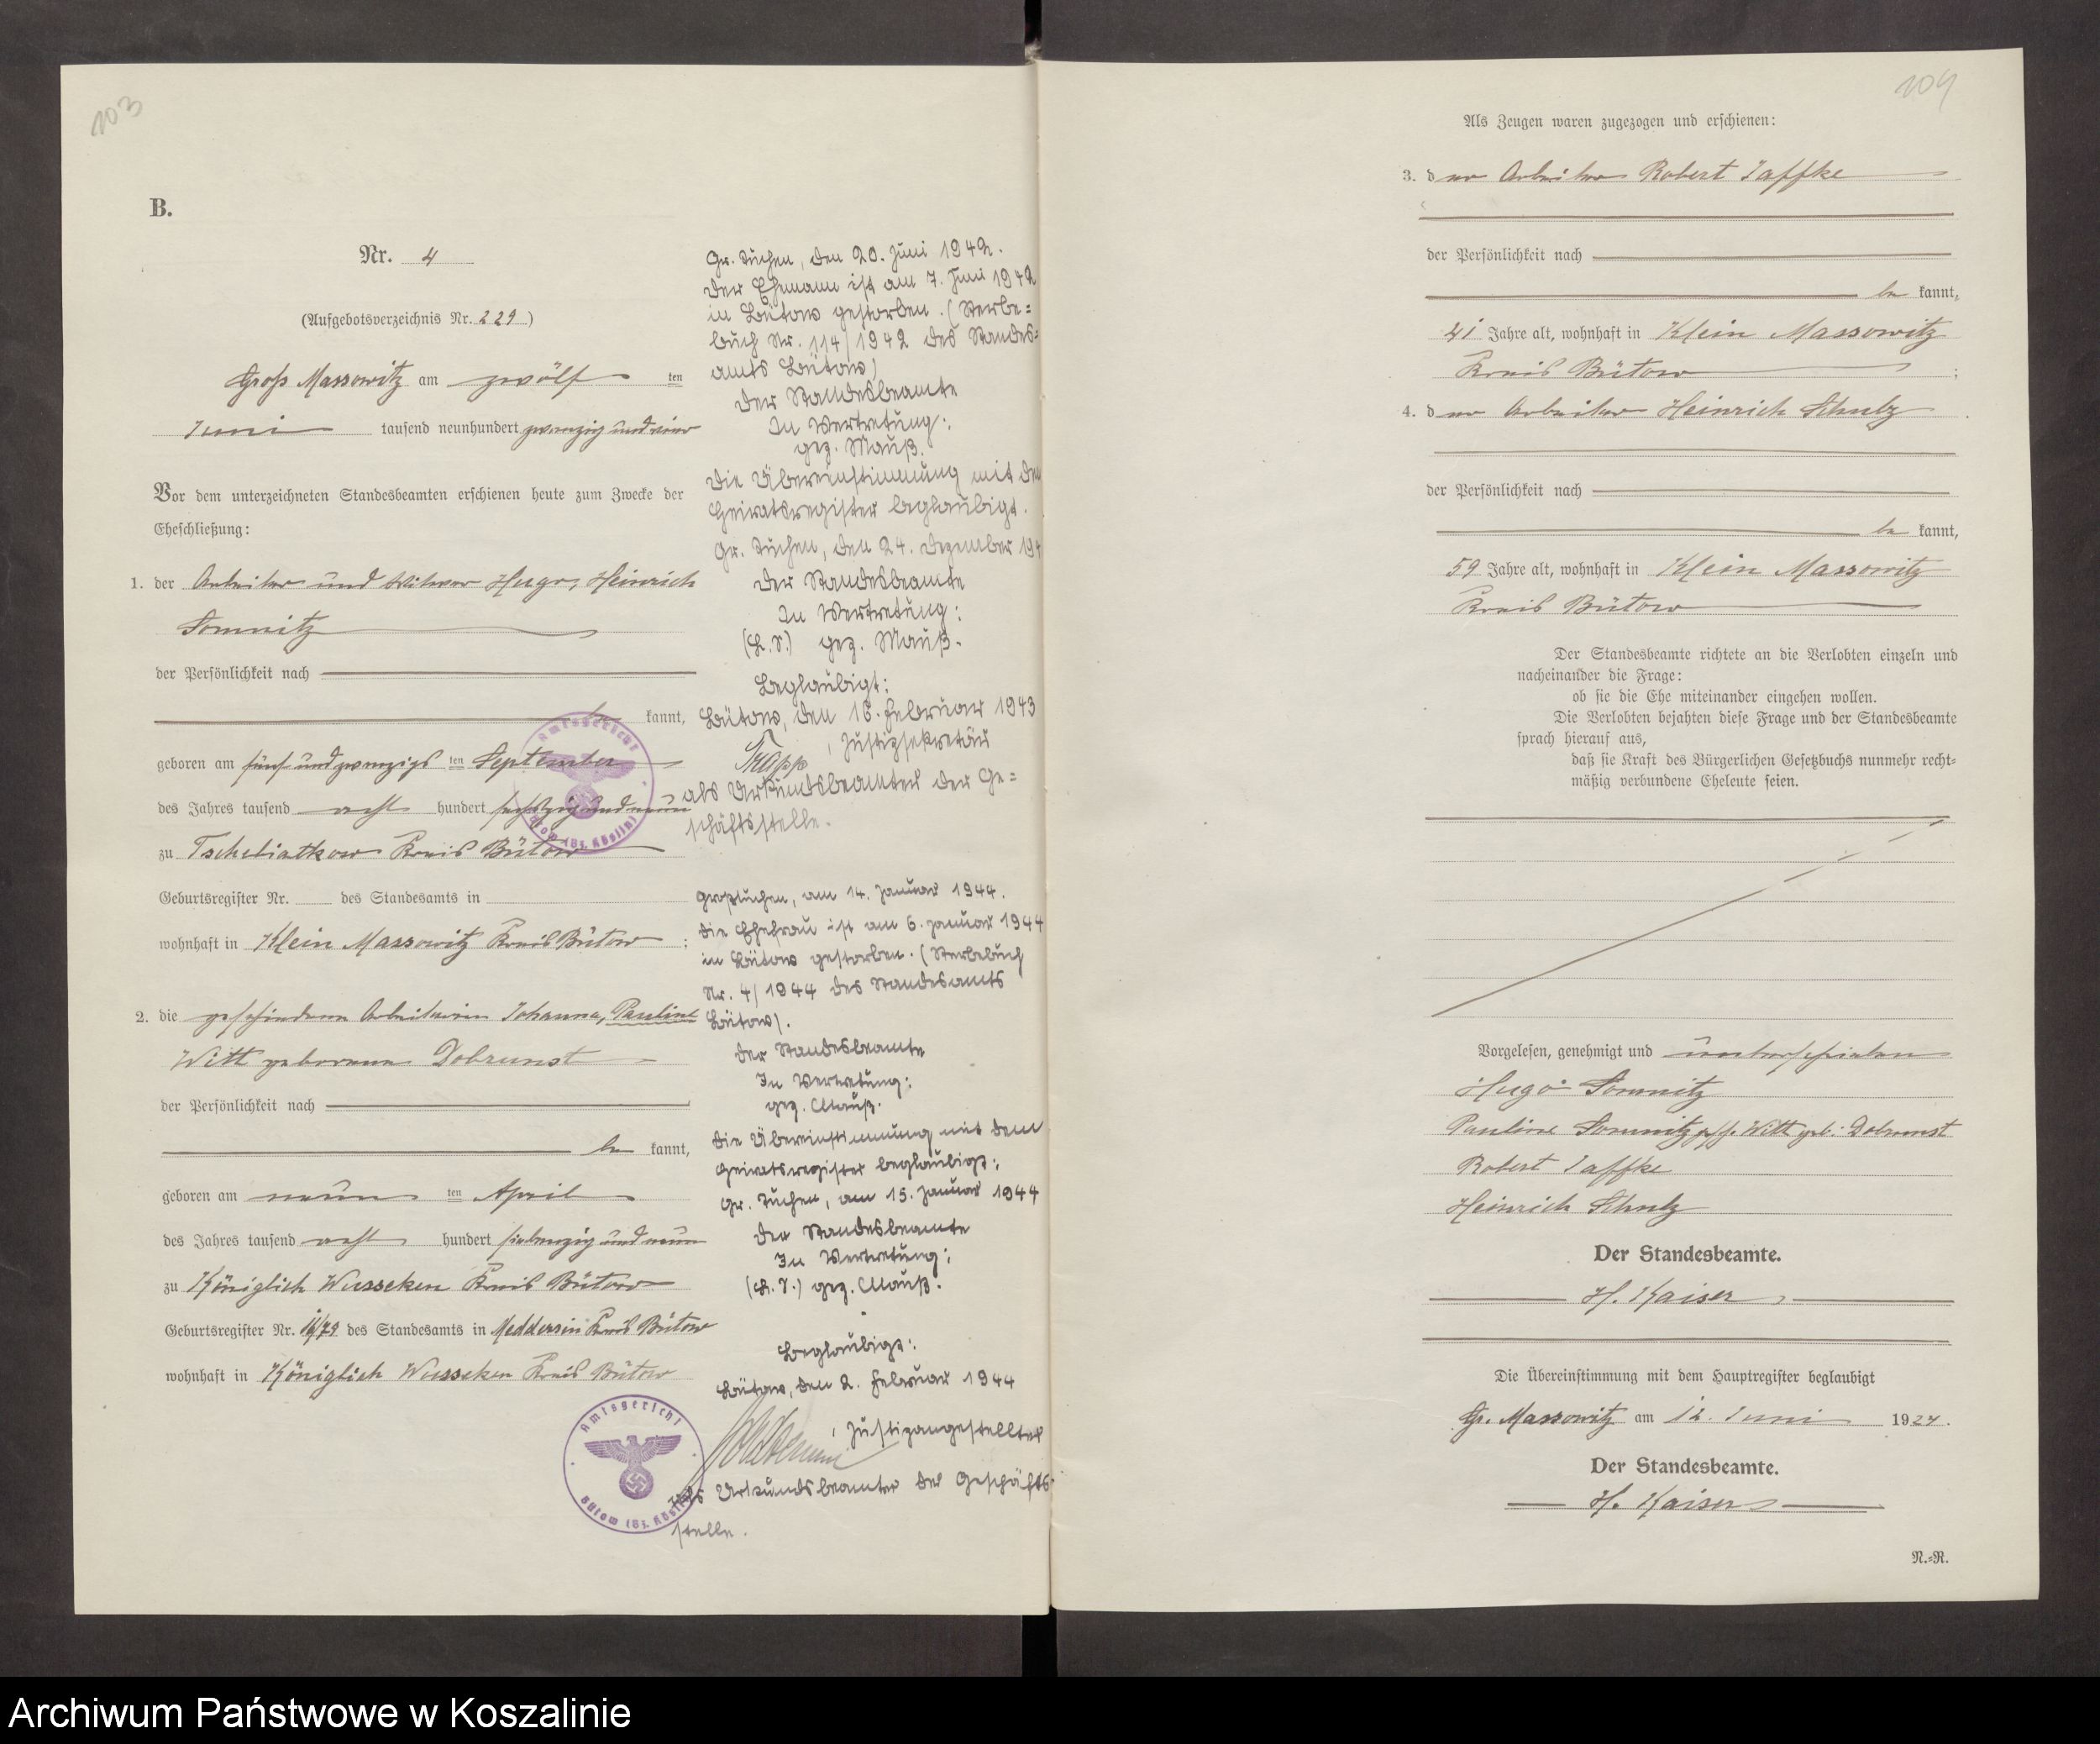 103
B.
Nr. 4
(Aufgebotsverzeichnis Nr. 229)
Groß Massowitz am zwölf ten
Juni tausend neunhundert zwanzig und vier
Vor dem unterzeichneten Standesbeamten erschienen heute zum Zwecke der
Eheschließung:
1. der Arbeiter und Witwer Hugo, Heinrich
Somnitz
der Persönlichkeit nach
be kannt,
geboren am fünf und zwanzigs ten September
des Jahres tausend acht hundert sechszig und neun
zu Tschebiatkow Kreis Bütow
Geburtsregister Nr. des Standesamts in
wohnhaft in Klein Massowitz Kreis Bütow ;
2. die geschiedene Arbeiterin Johanna, Pauline
Witt geborene Dobrunst
der Persönlichkeit nach
be kannt,
geboren am neun ten April
des Jahres tausend acht hundert siebenzig und neun
zu Königlich Wusseken Kreis Bütow
Geburtsregister Nr. 16/79 des Standesamts in Meddersin Kreis Bütow
wohnhaft in Königlich Wusseken Kreis Bütow
Gr. Tuchen, den 20. Juni 1942.
Der Ehemann ist am 7. Juni 1942
in Bütow gestorben. (Sterbe=
buch Nr. 114/1942 des Standes=
amts Bütow)
Der Standesbeamte
In Vertretung:
gez. Mauß.
Die Übereinstimmung mit dem
Heiratsregister beglaubigt.
Gr. Tuchen, den 24. Dezember 194
Der Standesbeamte
In Vertretung:
(L.S.) gez. Mauß.
Beglaubigt:
Bütow, den 16. Februar 1943
Trapp, Justizsekretär
als Urkundsbeamter der Ge=
schäftsstelle.
Großtuchen, am 14. Januar 1944.
Die Ehefrau ist am 6. Januar 1944
in Bütow gestorben. (Sterbebuch
Nr. 4/1944 des Standesamts
Bütow).
Der Standesbeamte
In Vertretung:
gez. Mauß.
Die Übereinstimmung mit dem
Heiratsregister beglaubigt:
Gr. Tuchen, am 15. Januar 1944
Der Standesbeamte
In Vertretung:
(L.S.) gez. Mauß.
Beglaubigt:
Bütow, den 2. Februar 1944
, Justizangestellter
als Urkundsbeamter der Geschäfts=
stelle.
Amtsgericht
Bütow (Bz. Köslin)
Amtsgericht
Bütow (Bz. Köslin)
104
Als Zeugen waren zugezogen und erschienen:
3. der Arbeiter Robert Jaffke
der Persönlichkeit nach
be kannt,
41 Jahre alt, wohnhaft in Klein Massowitz
Kreis Bütow ;
4. der Arbeiter Heinrich Schulz
der Persönlichkeit nach
be kannt,
59 Jahre alt, wohnhaft in Klein Massowitz
Kreis Bütow
Der Standesbeamte richtete an die Verlobten einzeln und
nacheinander die Frage:
ob sie die Ehe miteinander eingehen wollen.
Die Verlobten bejahten diese Frage und der Standesbeamte
sprach hierauf aus,
daß sie Kraft des Bürgerlichen Gesetzbuchs nunmehr recht-
mäßig verbundene Eheleute seien.
Vorgelesen, genehmigt und unterschrieben
Hugo Somnitz
Pauline Somnitz gesch. Witt geb. Dobrunst
Robert Jaffke
Heinrich Schulz
Der Standesbeamte.
H. Kaiser
Die Übereinstimmung mit dem Hauptregister beglaubigt
Gr. Massowitz am 12. Juni 1924.
Der Standesbeamte.
H. Kaiser
N.=R.
Archiwum Państwowe w Koszalinie